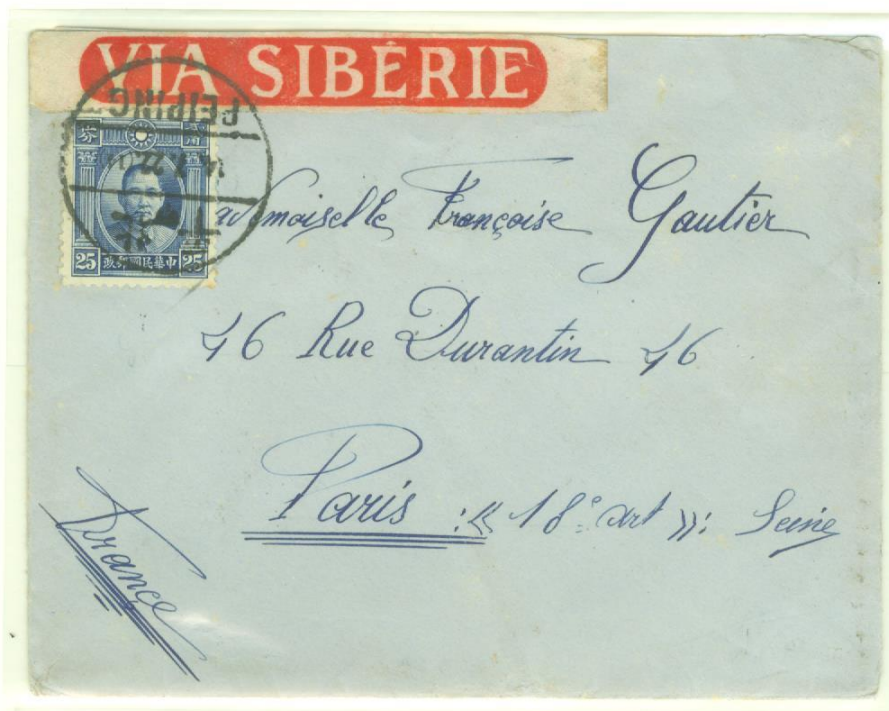 VIA SIBÉRIE
PEIPING
25 中華民國郵政 25
Mademoiselle Françoise Gautier
46 Rue Durantin 46
Paris :« 18e art »: Seine
France